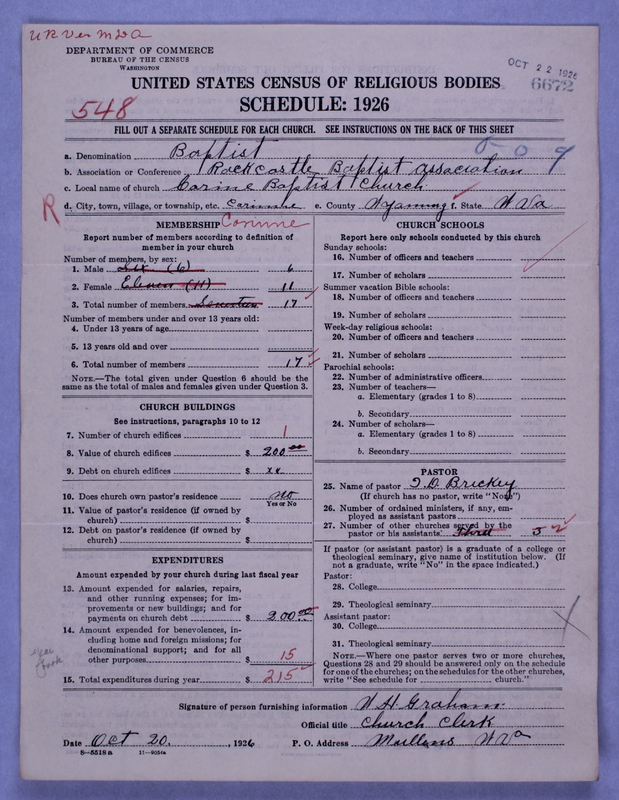 DEPARTMENT OF COMMERCE
BUREAU OF THE CENSUS
WASHINGTON
OCT 22 1926
6672
UNITED STATES CENSUS OF RELIGIOUS BODIES
SCHEDULE: 1926
548
FILL OUT A SEPARATE SCHEDULE FOR EACH CHURCH. SEE INSTRUCTIONS ON THE BACK OF THIS SHEET
a. Denomination Baptist
b. Association or Conference Rockcastle Baptist Association
c. Local name of church Corine Baptist Church
R
d. City, town, village, or township, etc. Corinne e. County Wyoming f. State W Va
Corinne
MEMBERSHIP
Report number of members according to definition of
member in your church
Number of members, by sex:
1. Male Six (6) 6
2. Female Eleven (11) 11
3. Total number of members Seventeen 17
Number of members under and over 13 years old:
4. Under 13 years of age
5. 13 years old and over
6. Total number of members 17
NOTE.—The total given under Question 6 should be the
same as the total of males and females given under Question 3.
CHURCH BUILDINGS
See instructions, paragraphs 10 to 12
7. Number of church edifices 1
8. Value of church edifices $ 200 00
9. Debt on church edifices $ xx
10. Does church own pastor's residence no
Yes or No
11. Value of pastor's residence (if owned by
church) $
12. Debt on pastor's residence (if owned by
church) $
EXPENDITURES
Amount expended by your church during last fiscal year
13. Amount expended for salaries, repairs,
and other running expenses; for im-
provements or new buildings; and for
payments on church debt $ 200 00
14. Amount expended for benevolences, in-
cluding home and foreign missions; for
denominational support; and for all
other purposes $ 15
year
book
15. Total expenditures during year $ 215
CHURCH SCHOOLS
Report here only schools conducted by this church
Sunday schools:
16. Number of officers and teachers
17. Number of scholars
Summer vacation Bible schools:
18. Number of officers and teachers
19. Number of scholars
Week-day religious schools:
20. Number of officers and teachers
21. Number of scholars
Parochial schools:
22. Number of administrative officers
23. Number of teachers—
a. Elementary (grades 1 to 8)
b. Secondary
24. Number of scholars—
a. Elementary (grades 1 to 8)
b. Secondary
PASTOR
25. Name of pastor I. D. Brickey
(If church has no pastor, write "None")
26. Number of ordained ministers, if any, em-
ployed as assistant pastors
27. Number of other churches served by the
pastor or his assistants: Three 3
If pastor (or assistant pastor) is a graduate of a college or
theological seminary, give name of institution below. (If
not a graduate, write "No" in the space indicated.)
Pastor:
28. College
29. Theological seminary
Assistant pastor:
30. College
31. Theological seminary
NOTE.—Where one pastor serves two or more churches,
Questions 28 and 29 should be answered only on the schedule
for one of the churches; on the schedules for the other churches,
write "See schedule for church."
Signature of person furnishing information W H Graham
Official title Church Clerk
Date Oct 20, 1926 P. O. Address Mullens W Va
8—5518a 11—9054a